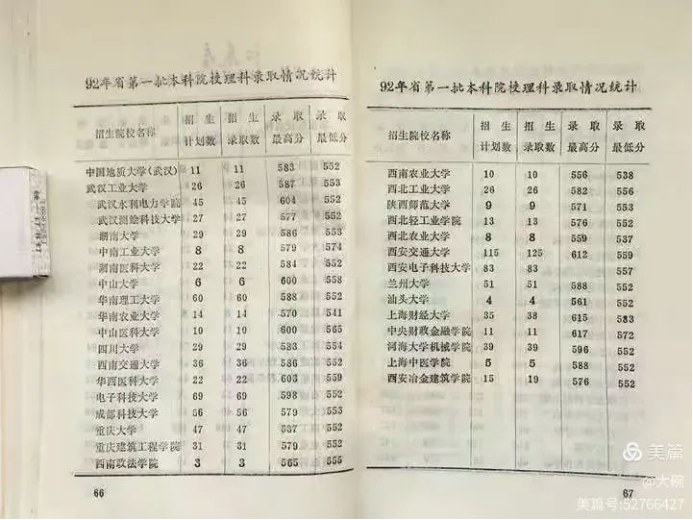 92年省第一批本科院校理科录取情况统计
招生院校名称 招生计划数 招生录取数 录取最高分 录取最低分
中国地质大学(武汉) 11 11 583 552
武汉工业大学 26 26 587 553
武汉水利电力学院 45 45 604 552
武汉测绘科技大学 27 27 577 552
湖南大学 29 29 586 553
中南工业大学 8 8 579 574
湖南医科大学 22 22 584 552
中山大学 6 6 600 558
华南理工大学 60 60 588 552
华南农业大学 14 14 570 541
中山医科大学 10 10 600 565
四川大学 29 29 583 554
西南交通大学 36 36 586 552
华西医科大学 22 22 603 559
电子科技大学 69 69 598 552
成都科技大学 56 56 579 553
重庆大学 47 47 587 552
重庆建筑工程学院 31 31 579 552
西南政法学院 3 3 565 555
66
92年省第一批本科院校理科录取情况统计
招生院校名称 招生计划数 招生录取数 录取最高分 录取最低分
西南农业大学 10 10 556 538
西北工业大学 26 26 582 556
陕西师范大学 9 9 571 553
西北轻工业学院 13 13 576 552
西北农业大学 8 8 559 537
西安交通大学 115 125 612 559
西安电子科技大学 83 83 557
兰州大学 51 51 588 552
汕头大学 4 4 561 552
上海财经大学 35 38 615 583
中央财政金融学院 11 11 617 572
河海大学机械学院 39 39 596 552
上海中医学院 5 5 588 552
西安冶金建筑学院 15 19 576 552
67
美篇
@大碗
美篇号:52766427